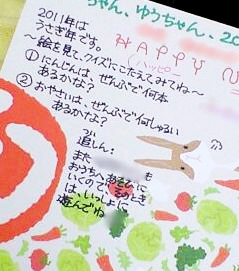 ちゃん、ゆうちゃん、20
HAPPY N
(ハッピー
2011年は
うさぎ年です。
～絵を見て、クイズにこたえてみてね～
①にんじんは、ぜんぶで何本
あるかな?
②おやさいは、ぜんぶで何しゅるい
あるかな?
追しん:
また も
おうちへあそびに
いくので、そのとき
は、いっしょに
遊んでね